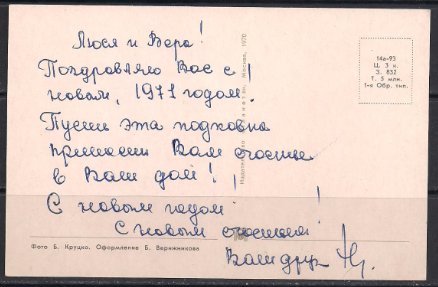 Люся и Вера!
Поздравляю Вас с
новым, 1971 годом!
Пусть эта подковка
принесет Вам счастье
в Ваш дом!
С новым годом!
С новым счастьем!
Ваш друг
14а-93
Ц. 3 к.
З. 832
Т. 5 млн.
1-я Обр. тип.
Москва, 1970
Фото Б. Круцко. Оформление Б. Верижникова